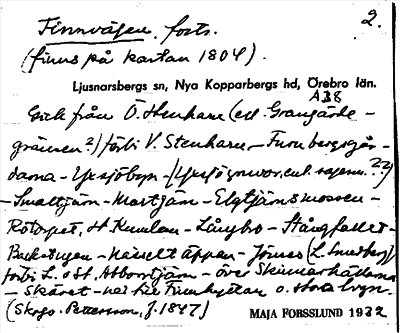 Finnvägen. forts. 2.
(finns på kartan 1804).
Ljusnarsbergs sn, Nya Kopparbergs hd, Örebro län.
A 38
Gick från Ö. Stenhare (vid Grangärde-
gränsen?) förbi V. Stenharen - Finnbergsgår-
darna - Yxsjöbyn - /Yxsjögruvor enl. sägnen??/
- Smaltjärn - Martjärn - Elgtjärnsmossen -
Rötorpet, St. Kumlan - Långbo - Stångfallet -
Backstugan - Näsveltäppan - Jönses (L. Smedberg)
förbi L. o St. Abborrtjärn - över Skinnarhällarna
- Skäret - ner till Finnhyttan o. stora byn.
(Skogv. Pettersson, f. 1847)
MAJA FORSSLUND 1932